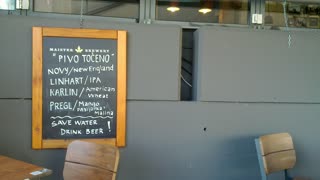 MALIFER BREWERY
"PIVO TOČENO"
NOVY/New England
LINHART/IPA
KARLIN/American
Wheat
PREGL/Mango
Pasijonka
Malina
SAVE WATER
DRINK BEER!